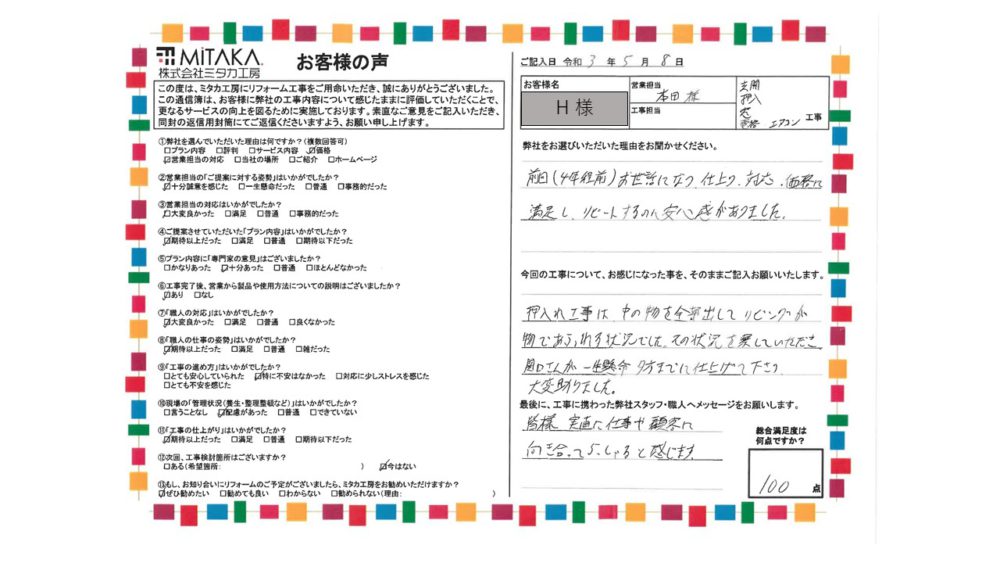 MiTAKA.
株式会社ミタカ工房
お客様の声
この度は、ミタカ工房にリフォーム工事をご用命いただき、誠にありがとうございました。
この通信簿は、お客様に弊社の工事内容について感じたままに評価していただくことで、
更なるサービスの向上を図るために実施しております。率直なご意見をご記入いただき、
同封の返信用封筒にてご返信くださいますよう、お願い申し上げます。
①弊社を選んでいただいた理由は何ですか?(複数回答可)
□プラン内容 □評判 □サービス内容 ☑価格
☑営業担当の対応 □当社の場所 □ご紹介 □ホームページ
②営業担当の「ご提案に対する姿勢」はいかがでしたか?
☑十分誠意を感じた □一生懸命だった □普通 □事務的だった
③営業担当の対応はいかがでしたか?
☑大変良かった □満足 □普通 □事務的だった
④ご提案させていただいた「プラン内容」はいかがでしたか?
☑期待以上だった □満足 □普通 □期待以下だった
⑤プラン内容に「専門家の意見」はございましたか?
□かなりあった ☑十分あった □普通 □ほとんどなかった
⑥工事完了後、営業から製品や使用方法についての説明はございましたか?
☑あり □なし
⑦「職人の対応」はいかがでしたか?
☑大変良かった □満足 □普通 □良くなかった
⑧「職人の仕事の姿勢」はいかがでしたか?
☑期待以上だった □満足 □普通 □雑だった
⑨「工事の進め方」はいかがでしたか?
□とても安心していられた ☑特に不安はなかった □対応に少しストレスを感じた
□とても不安を感じた
⑩現場の「管理状況(養生・整理整頓など)」はいかがでしたか?
□言うことなし ☑配慮があった □普通 □できていない
⑪「工事の仕上がり」はいかがでしたか?
☑期待以上だった □満足 □普通 □期待以下だった
⑫次回、工事検討箇所はございますか?
□ある(希望箇所: ) ☑今はない
⑬もし、お知り合いにリフォームのご予定がございましたら、ミタカ工房をお勧めいただけますか?
☑ぜひ勧めたい □勧めても良い □わからない □勧められない(理由: )
ご記入日 令和 3 年 5 月 8 日
お客様名
H 様
営業担当
本田 様
工事担当
玄関
押入
窓
エアコン 工事
弊社をお選びいただいた理由をお聞かせください。
前回(4年程前)お世話になり、仕上り、対応、価格に
満足し、リピートするのに安心感がありました。
今回の工事について、お感じになった事を、そのままご記入お願いいたします。
押入れ工事は、中の物を全部出してリビングが
物であふれる状況でした。その状況を察していただき
田口さんが一生懸命夕方までに仕上げて下さり
大変助りました。
最後に、工事に携わった弊社スタッフ・職人へメッセージをお願いします。
皆様 実直に仕事や顧客に
向き合っていらっしゃると感じます
総合満足度は
何点ですか?
100 点